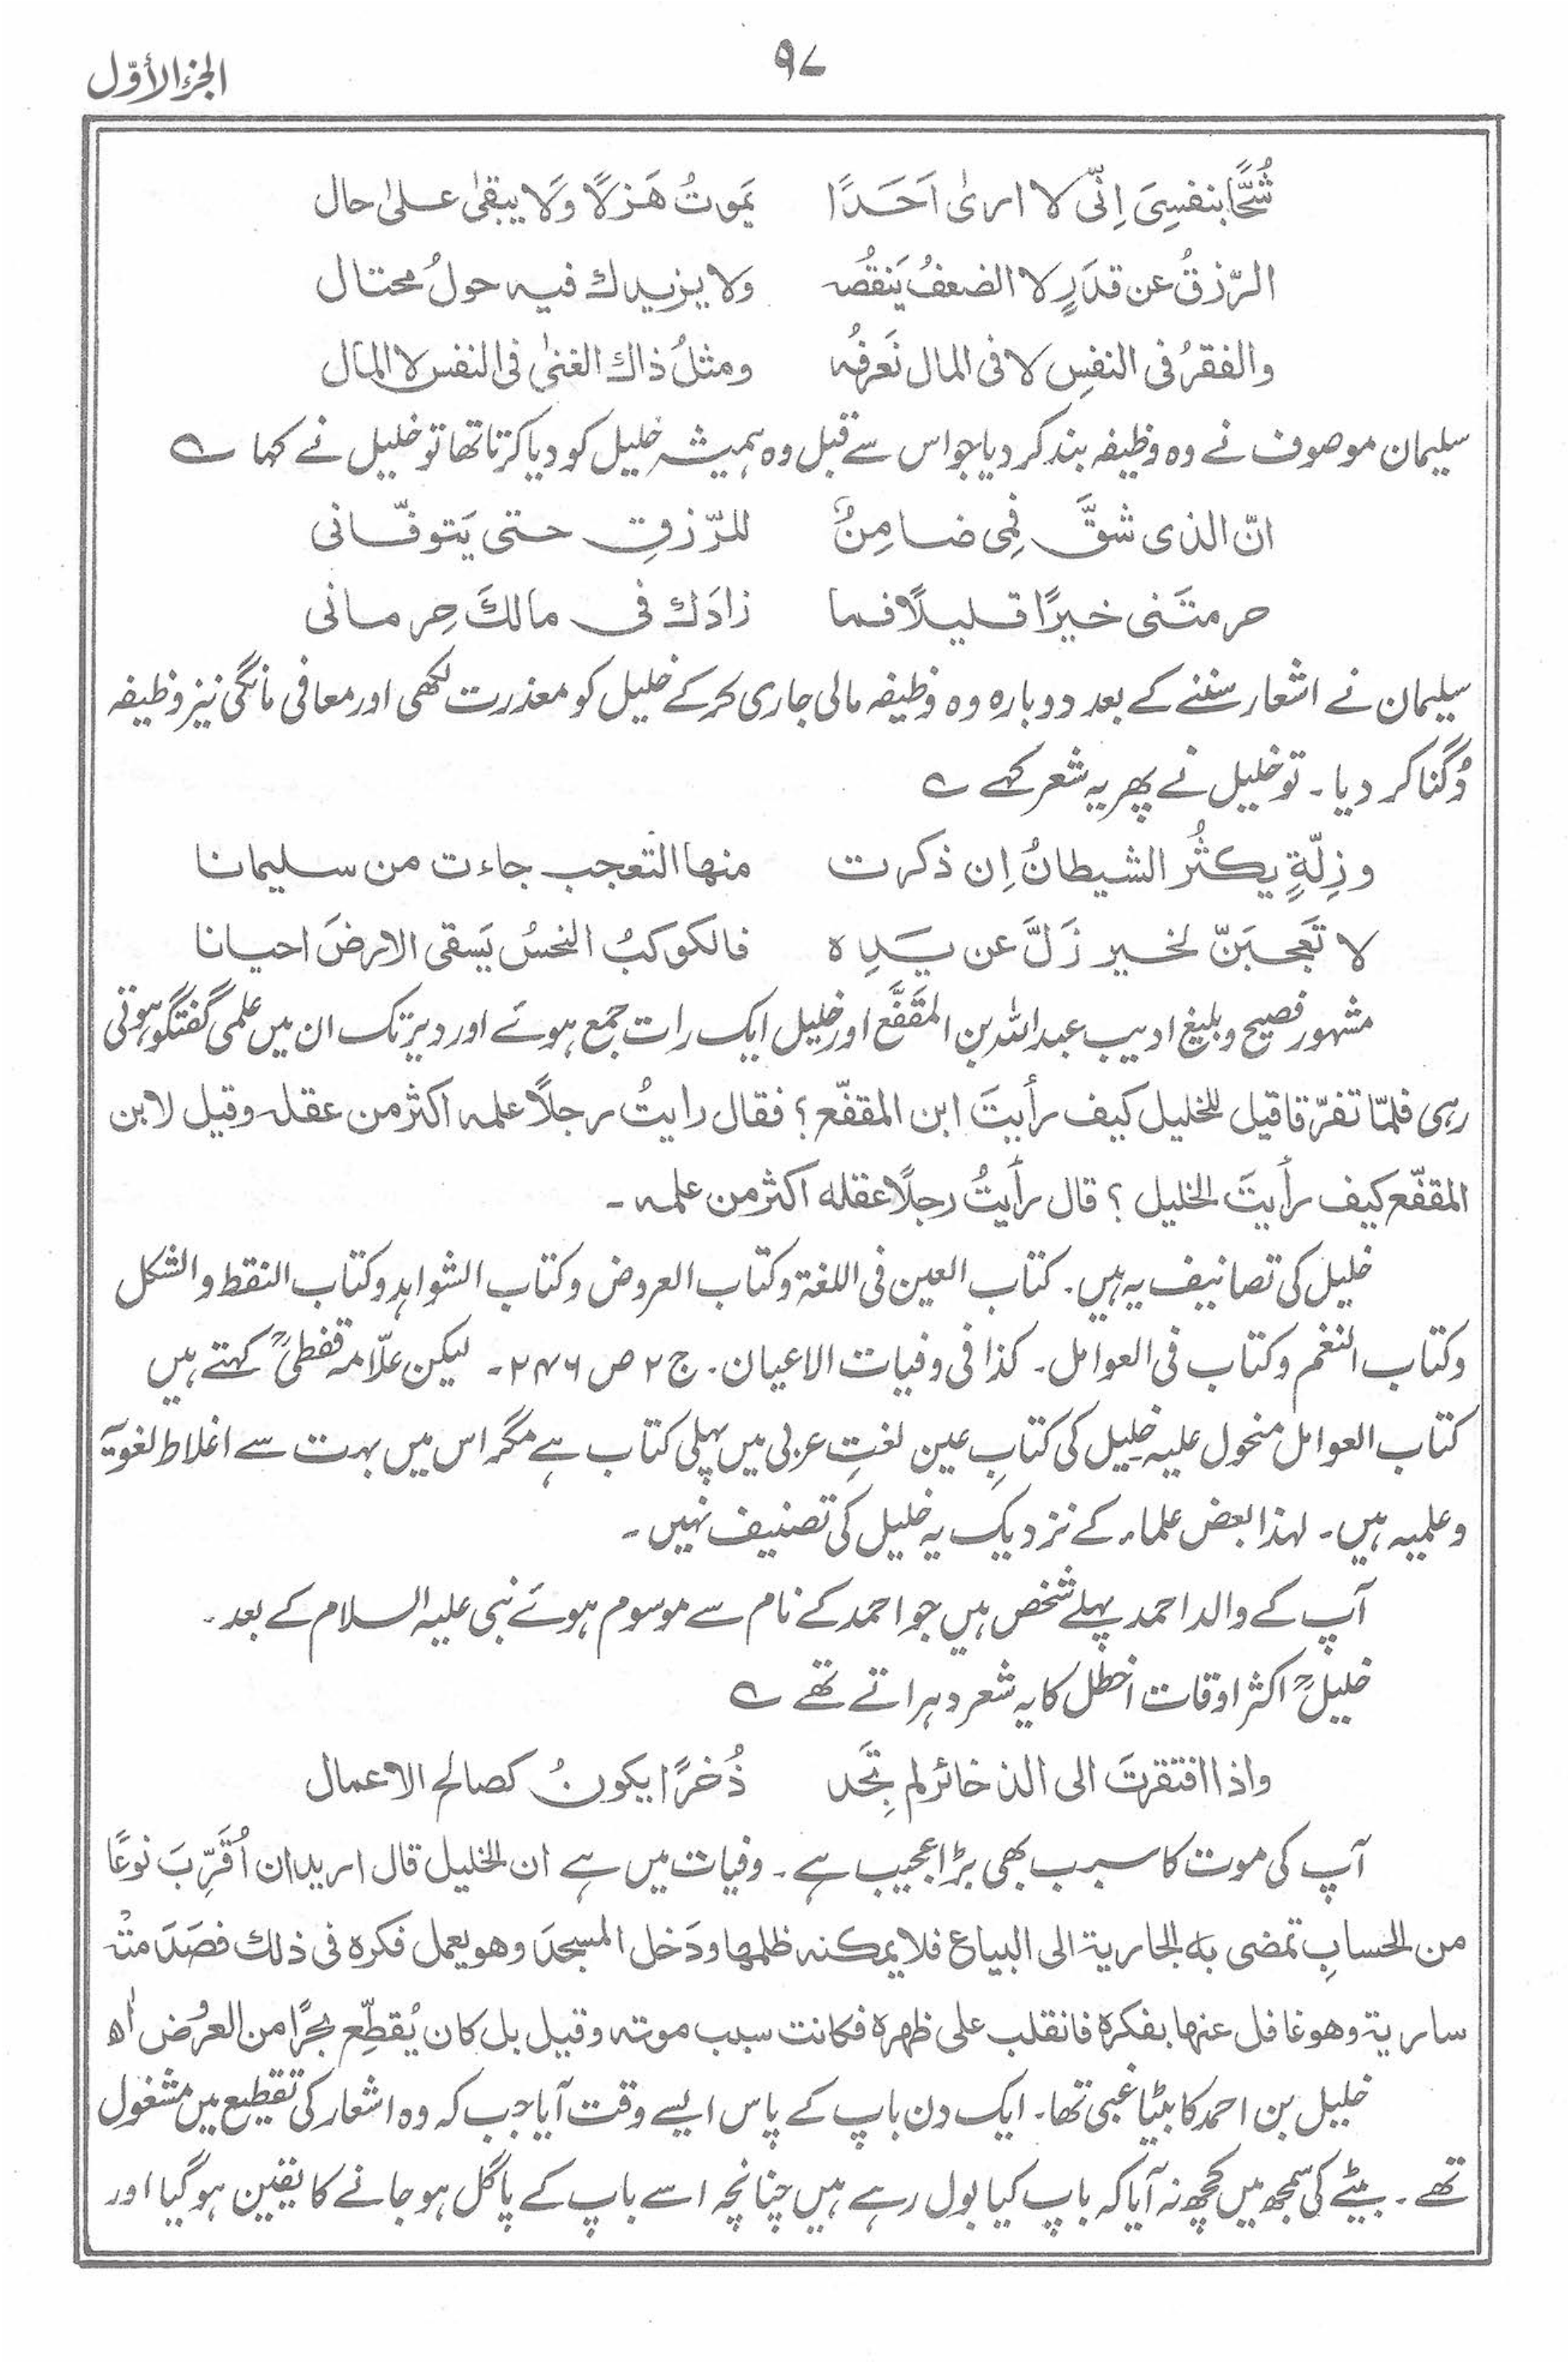 ۹۷
الجزء الأوّل
شُحًّا بنفسِیَ اِنّی لا اریٰ اَحَدًا یَموتُ هَزلًا وَلا یبقیٰ علیٰ حال
الرّزقُ عن قدَرٍ لا الضعفُ یَنقُصه ولا یزیدك فیه حولُ محتال
والفقرُ فی النفسِ لا فی المال نَعرِفُه ومثلُ ذاك الغنیٰ فی النفس لا المال
سلیمان موصوف نے وہ وظیفہ بند کر دیا جو اس سے قبل وہ ہمیشہ خلیل کو دیا کرتا تھا تو خلیل نے کہا ے
انّ الذی شقَّ فَمِی ضامِنٌ للرّزقِ حتی یَتوفّانی
حرمتَنی خیرًا قلیلًا فما زادَك فی مالكَ حِرمانی
سلیمان نے اشعار سننے کے بعد دوبارہ وہ وظیفہ مالی جاری کرکے خلیل کو معذرت لکھی اور معافی مانگی نیز وظیفہ
دُگنا کر دیا ۔ تو خلیل نے پھر یہ شعر کہے ے
وزِلّةٍ یکثُر الشیطانُ اِن ذکرت منها التعجب جاءت من سلیمانا
لا تَعجبَنّ لخیر زَلَّ عن یَدِہ فالکوکبُ النحسُ یَسقی الارضَ احیانا
مشہور فصیح و بلیغ ادیب عبداللہ بن المقَفَّع اور خلیل ایک رات جمع ہوئے اور دیر تک ان میں علمی گفتگو ہوتی
رہی فلمّا تفرّقا قیل للخلیل کیف رأیتَ ابن المقفّع ؟ فقال رایتُ رجلًا علمه اکثر من عقله وقیل لابن
المقفّع کیف رأیتَ الخلیل ؟ قال رأیتُ رجلًا عقله اکثر من علمه ۔
خلیل کی تصانیف یہ ہیں ۔ کتاب العین فی اللغۃ وکتاب العروض وکتاب الشواہد وکتاب النقط والشکل
وکتاب النغم وکتاب فی العوامل ۔ کذا فی وفیات الاعیان ۔ ج ۲ ص ۲۴۶ ۔ لیکن علّامہ قفطیؒ کہتے ہیں
کتاب العوامل منحول علیہ خلیل کی کتابِ عین لغتِ عربی میں پہلی کتاب ہے مگر اس میں بہت سے اغلاط لغویّہ
وعلمیہ ہیں ۔ لہذا بعض علماء کے نزدیک یہ خلیل کی تصنیف نہیں ۔
آپ کے والد احمد پہلے شخص ہیں جو احمد کے نام سے موسوم ہوئے نبی علیہ السلام کے بعد ۔
خلیلؒ اکثر اوقات اخطل کا یہ شعر دہراتے تھے ے
واذا افتقرتَ الی الذخائر لم تَجِد ذُخرًا یکونُ کصالح الاعمال
آپ کی موت کا سبب بھی بڑا عجیب ہے ۔ وفیات میں ہے ان الخلیل قال ارید ان اُقَرِّبَ نوعًا
من الحسابِ تمضی به الجاریة الی البیاع فلا یمکنه ظلمها ودَخل المسجدَ وهو یعمل فکره فی ذلك فصَدَ متْه
ساریة وهو غافل عنها بفکره فانقلب علی ظهره فکانت سبب موته وقیل بل کان یُقطِّع بحرًا من العرُوض اٰہ
خلیل بن احمد کا بیٹا غبی تھا ۔ ایک دن باپ کے پاس ایسے وقت آیا جب کہ وہ اشعار کی تقطیع میں مشغول
تھے ۔ بیٹے کی سمجھ میں کچھ نہ آیا کہ باپ کیا بول رہے ہیں چنانچہ اسے باپ کے پاگل ہو جانے کا یقین ہو گیا اور